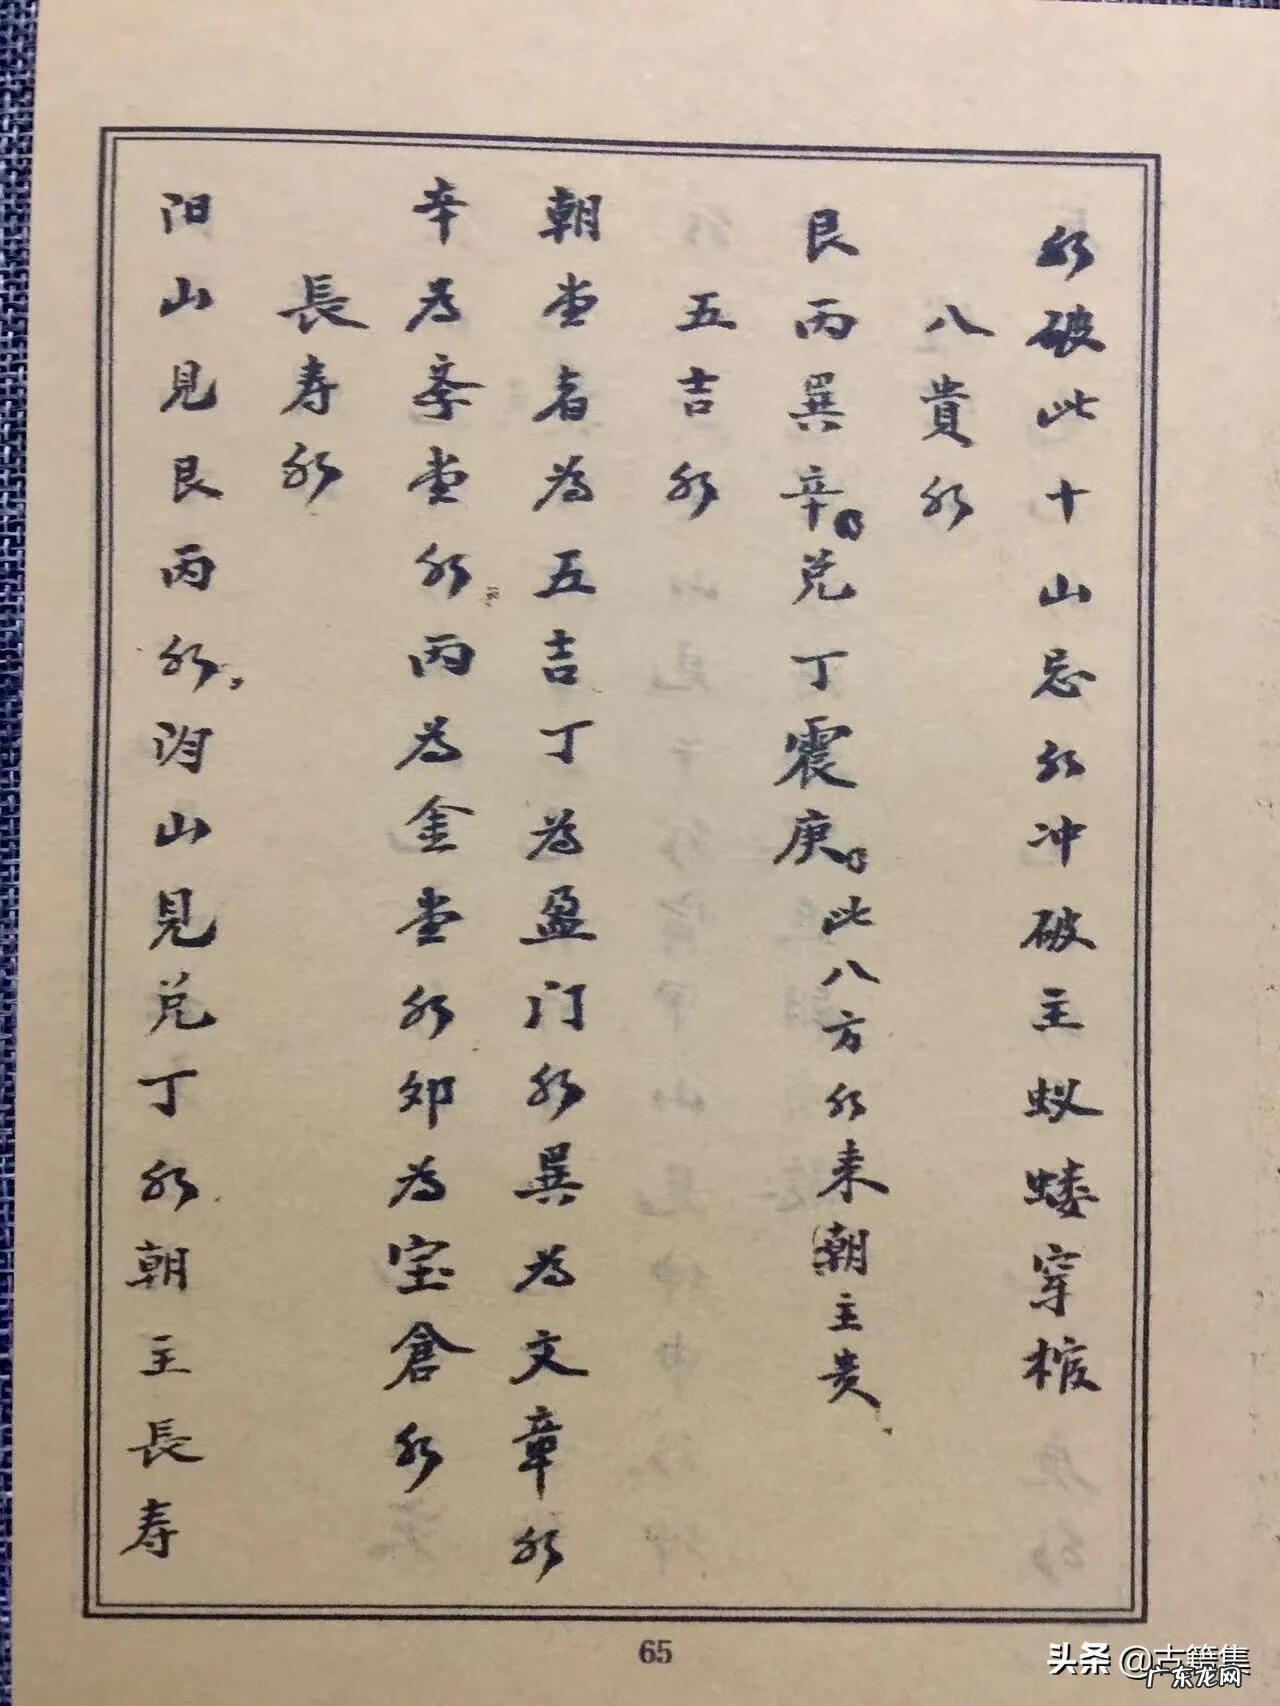 水破此十山忌水冲破主蚁蝼穿棺
八貴水
艮丙巽辛兑丁震庚此八方水来朝主贵
五吉水
朝堂者為五吉丁為盈门水巽為文章水
辛為季堂水丙為金堂水卯為宝倉水
長寿水
阳山見艮丙水阴山見兑丁水朝主長寿
65
头条 @古籍集
广东龙网